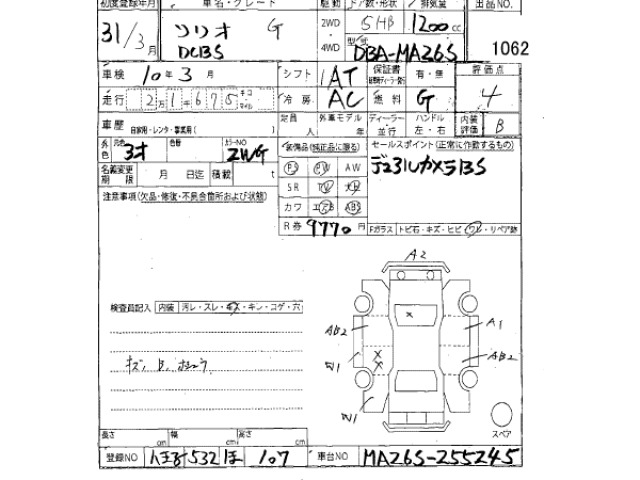 初度登録年月 車名・グレード 駆動 ドア数・形状 排気量 出品NO.
31/3月 ソリオ G 2WD 5HB 1200cc
DCBS 4WD 型式 DBA-MA26S 1062
車検 10年3月 シフト AT 保証書 有・無 評価点
走行 2万1千675 キロ マイル 冷房 AC 燃料 G 4
車歴 自家用・レンタ・事業用( ) 定員 人 外車モデル 年 ディーラー 並行 ハンドル 左・右 内装評価 B
外色 元色 3オ 色替 カラーNO ZWG 装備品(純正品に限る) セールスポイント(正常に作動するもの)
PS PW AW デュアルカメラBS
名義変更期限 月 日迄 積載 t SR TV ナビ
注意事項(欠品・修復・不具合箇所および状態) カワ エアB ABS
R券 9770円 Fガラス トビ石・キズ・ヒビ ワレ・リペア跡
A2
検査員記入 内装 汚レ・スレ・キズ・キン・コゲ・穴
AB2 A1
W1 AB2
キズ、
W1
スペア
長さ cm 幅 cm 高さ cm
登録NO 八王子532 ほ 107 車台NO MA26S-255245